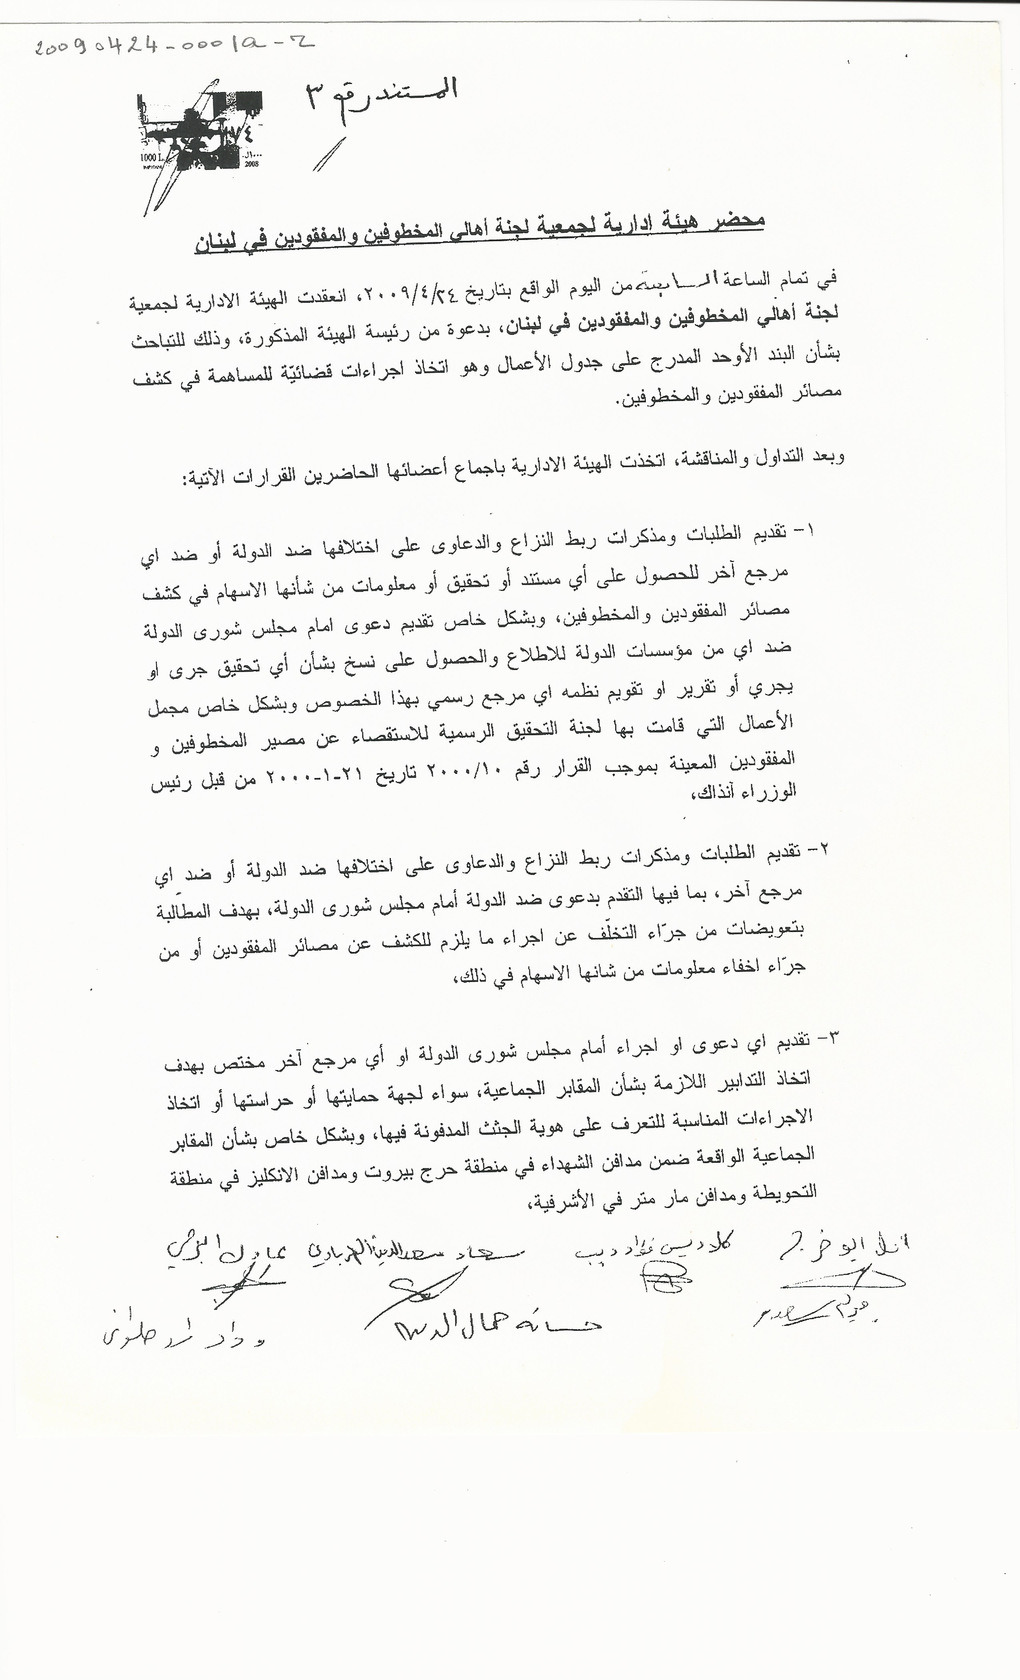 20090424-0001a-2
المستند رقم ٣
1000 L
2008
محضر هيئة ادارية لجمعية لجنة أهالي المخطوفين والمفقودين في لبنان
في تمام الساعة السابعة من اليوم الواقع بتاريخ ٢٠٠٩/٤/٢٤، انعقدت الهيئة الادارية لجمعية
لجنة أهالي المخطوفين والمفقودين في لبنان، بدعوة من رئيسة الهيئة المذكورة، وذلك للتباحث
بشأن البند الأوحد المدرج على جدول الأعمال وهو اتخاذ اجراءات قضائيّة للمساهمة في كشف
مصائر المفقودين والمخطوفين.
وبعد التداول والمناقشة، اتخذت الهيئة الادارية باجماع أعضائها الحاضرين القرارات الآتية:
١- تقديم الطلبات ومذكرات ربط النزاع والدعاوى على اختلافها ضد الدولة أو ضد اي
مرجع آخر للحصول على أي مستند أو تحقيق أو معلومات من شأنها الاسهام في كشف
مصائر المفقودين والمخطوفين، وبشكل خاص تقديم دعوى امام مجلس شورى الدولة
ضد اي من مؤسسات الدولة للاطلاع والحصول على نسخ بشأن أي تحقيق جرى او
يجري أو تقرير او تقويم نظمه اي مرجع رسمي بهذا الخصوص وبشكل خاص مجمل
الأعمال التي قامت بها لجنة التحقيق الرسمية للاستقصاء عن مصير المخطوفين و
المفقودين المعينة بموجب القرار رقم ٢٠٠٠/١٠ تاريخ ٢١-١-٢٠٠٠ من قبل رئيس
الوزراء آنذاك،
٢- تقديم الطلبات ومذكرات ربط النزاع والدعاوى على اختلافها ضد الدولة أو ضد اي
مرجع آخر، بما فيها التقدم بدعوى ضد الدولة أمام مجلس شورى الدولة، بهدف المطالبة
بتعويضات من جرّاء التخلّف عن اجراء ما يلزم للكشف عن مصائر المفقودين أو من
جرّاء اخفاء معلومات من شانها الاسهام في ذلك،
٣- تقديم اي دعوى او اجراء أمام مجلس شورى الدولة او أي مرجع آخر مختص بهدف
اتخاذ التدابير اللازمة بشأن المقابر الجماعية، سواء لجهة حمايتها أو حراستها أو اتخاذ
الاجراءات المناسبة للتعرف على هوية الجثث المدفونة فيها، وبشكل خاص بشأن المقابر
الجماعية الواقعة ضمن مدافن الشهداء في منطقة حرج بيروت ومدافن الانكليز في منطقة
التحويطة ومدافن مار متر في الأشرفية،
كلاديس فؤاد ديب سعاد سعد الدين
حسانه جمال الدين
وداد حلواني